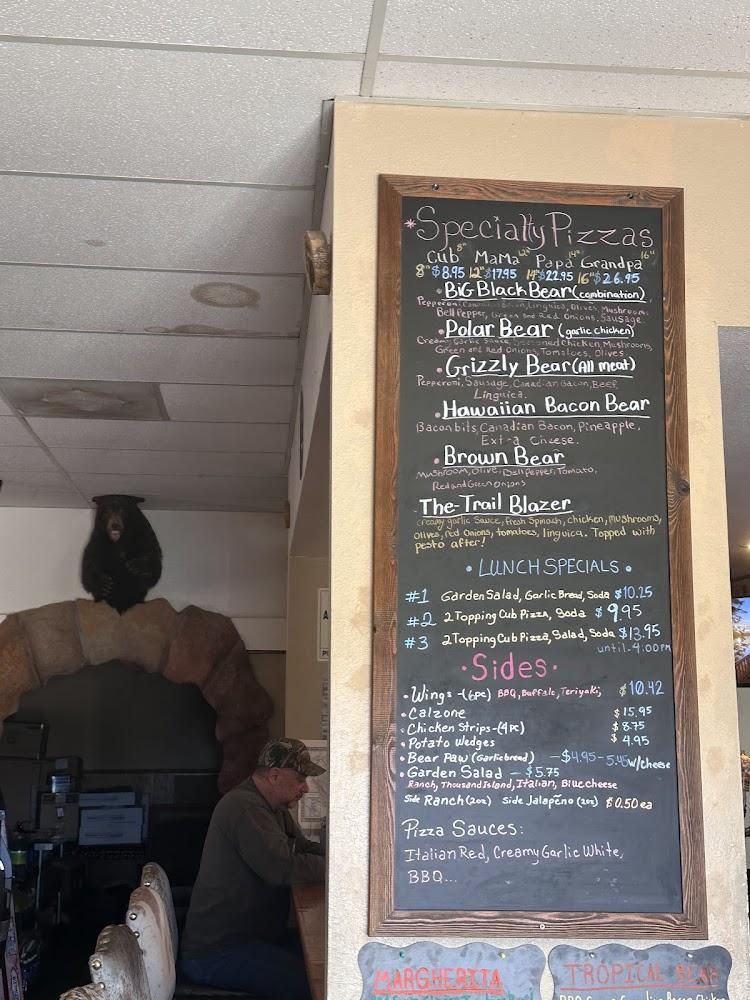 *Specialty Pizzas
Cub 8" MaMa 12" Papa 14" Grandpa 16"
8" $8.95 12" $17.95 14" $22.95 16" $26.95
• BiG Black Bear (combination)
Pepperoni, Canadian Bacon, Linguica, Olives, Mushroom,
Bell Pepper, Green and Red Onions, Sausage
• Polar Bear (garlic chicken)
Creamy Garlic Sauce, Seasoned Chicken, Mushrooms,
Green and Red Onions, Tomatoes, Olives
• Grizzly Bear (All meat)
Pepperoni, Sausage, Canadian Bacon, Beef,
Linguica.
• Hawaiian Bacon Bear
Bacon bits, Canadian Bacon, Pineapple,
Ext-a Cheese.
• Brown Bear
Mushroom, Olive, Bell Pepper, Tomato,
Red and Green Onions
The-Trail Blazer
creamy garlic Sauce, fresh Spinach, chicken, mushrooms,
olives, red onions, tomatoes, linguica. Topped with
pesto after!
• LUNCH SPECIALS •
#1 Garden Salad, Garlic Bread, Soda $10.25
#2 2 Topping Cub Pizza, Soda $9.95
#3 2 Topping Cub Pizza, Salad, Soda $13.95
until-4:00PM
• Sides •
• Wings -(6pc) BBQ, Buffalo, Teriyaki, $10.42
• Calzone $15.95
• Chicken Strips-(4pc) $8.75
• Potato Wedges $4.95
• Bear Paw (Garlic bread) -$4.95-5.45 w/cheese
• Garden Salad - $5.75
Ranch, Thousand Island, Italian, Blue cheese
Side Ranch (2oz) Side Jalapeño (2oz) $0.50 ea
Pizza Sauces:
Italian Red, Creamy Garlic White,
BBQ...
MARGHERITA
TROPICAL BEAR